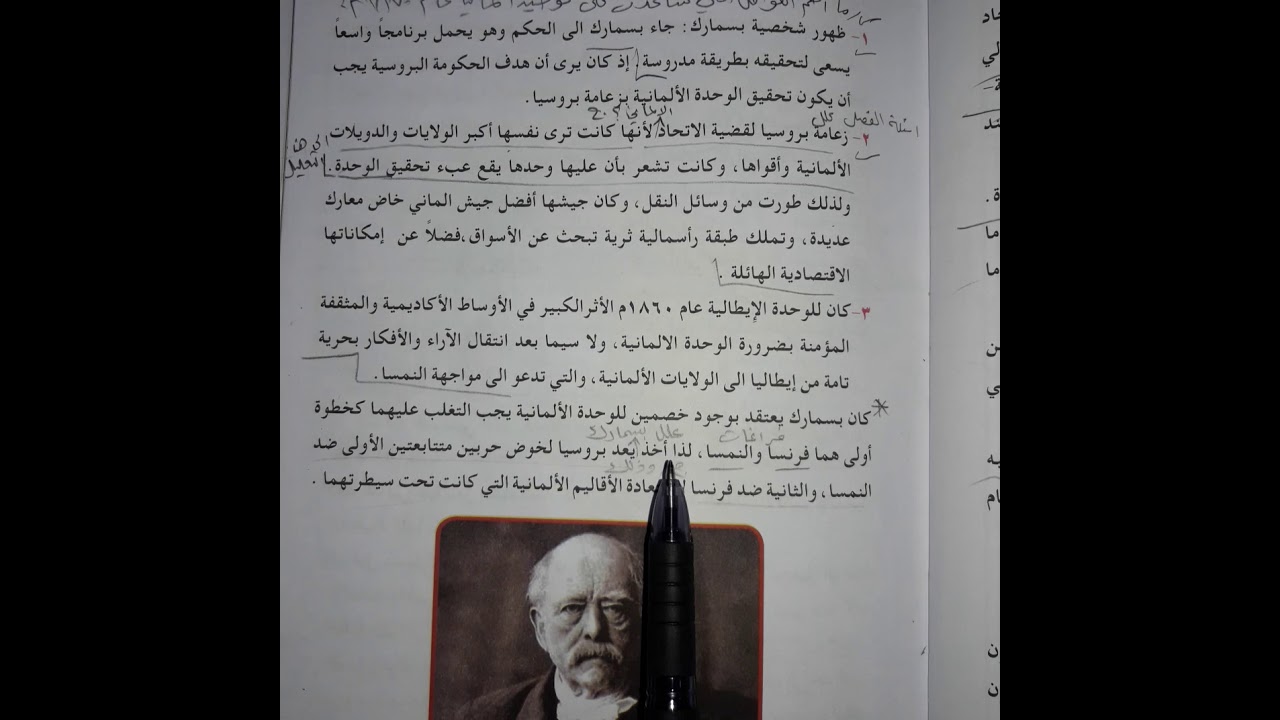 ١- ظهور شخصية بسمارك: جاء بسمارك الى الحكم وهو يحمل برنامجاً واسعاً
يسعى لتحقيقه بطريقة مدروسة إذ كان يرى أن هدف الحكومة البروسية يجب
أن يكون تحقيق الوحدة الألمانية بزعامة بروسيا.
اسئلة الفصل علل
٢- زعامة بروسيا لقضية الاتحاد لأنها كانت ترى نفسها أكبر الولايات والدويلات
الألمانية وأقواها، وكانت تشعر بأن عليها وحدها يقع عبء تحقيق الوحدة.
ولذلك طورت من وسائل النقل، وكان جيشها أفضل جيش الماني خاض معارك
عديدة، وتملك طبقة رأسمالية ثرية تبحث عن الأسواق،فضلاً عن إمكاناتها
الاقتصادية الهائلة .
٣- كان للوحدة الإيطالية عام ١٨٦٠م الأثر الكبير في الأوساط الأكاديمية والمثقفة
المؤمنة بضرورة الوحدة الالمانية، ولا سيما بعد انتقال الآراء والأفكار بحرية
تامة من إيطاليا الى الولايات الألمانية، والتي تدعو الى مواجهة النمسا.
كان بسمارك يعتقد بوجود خصمين للوحدة الألمانية يجب التغلب عليهما كخطوة
فراغات علل بسمارك
أولى هما فرنسا والنمسا، لذا أخذ يعد بروسيا لخوض حربين متتابعتين الأولى ضد
النمسا، والثانية ضد فرنسا الأقاليم الألمانية التي كانت تحت سيطرتهما .